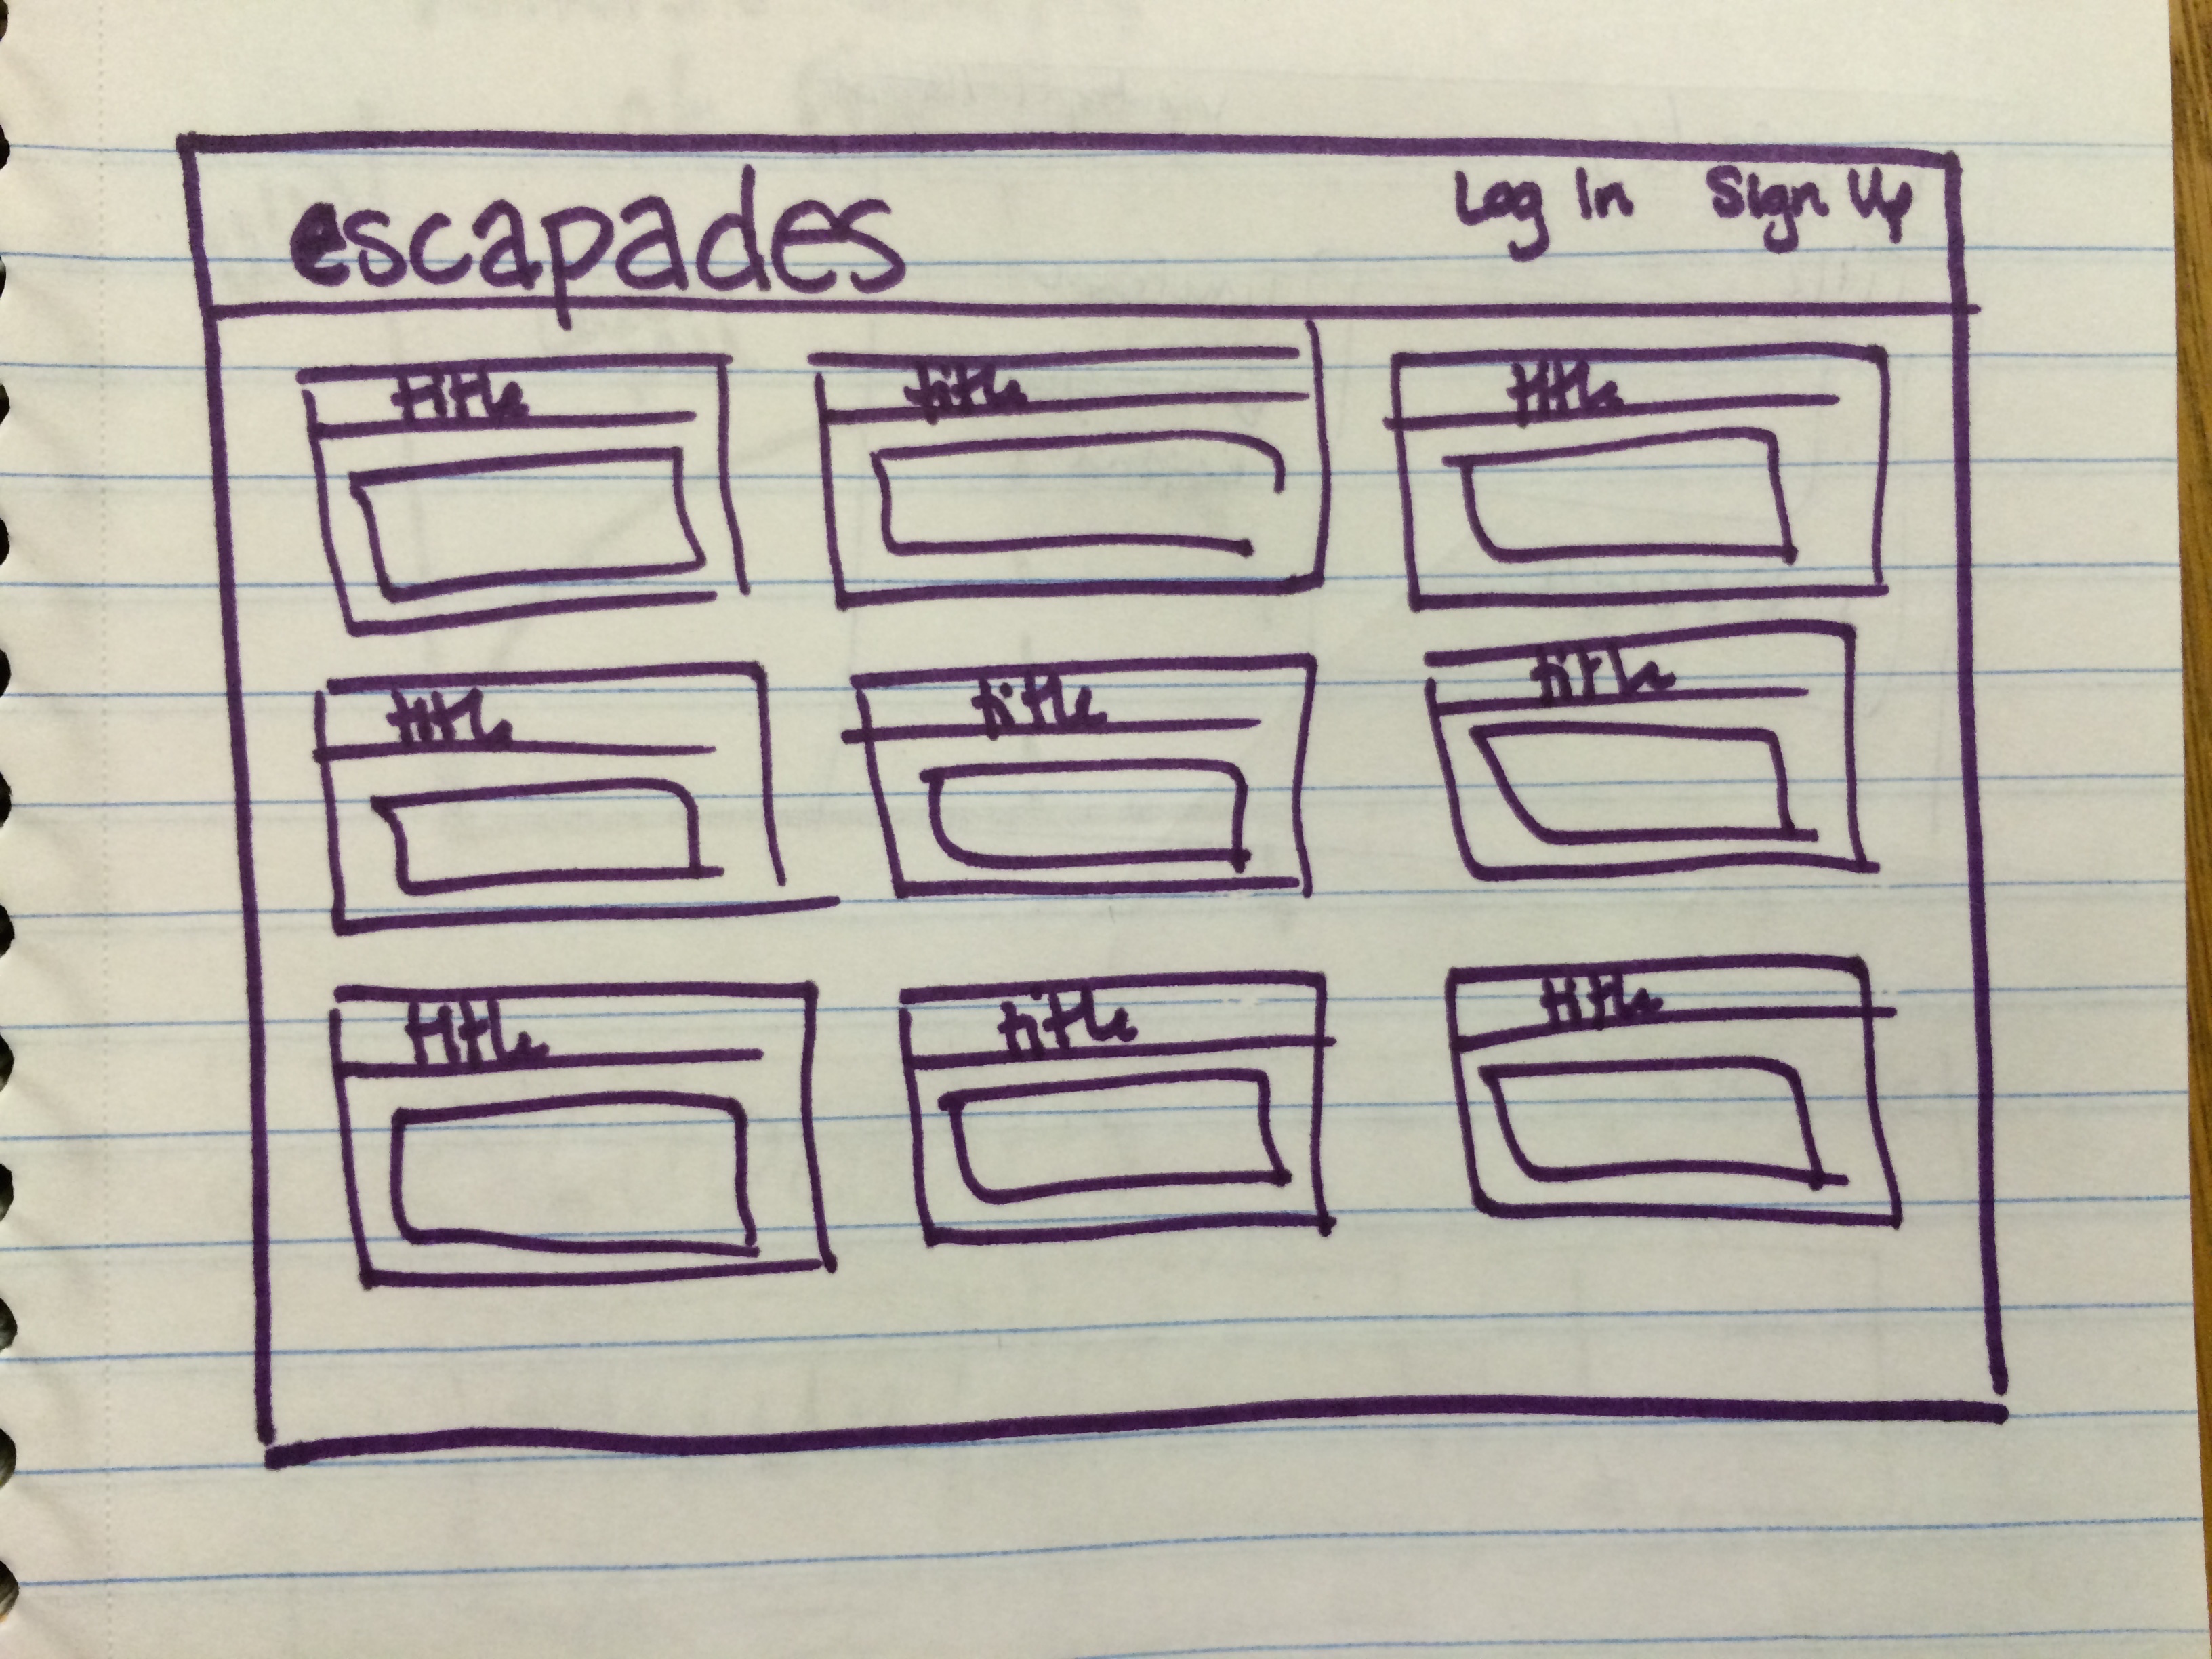 escapades Log In Sign Up
title title title
title title title
title title title